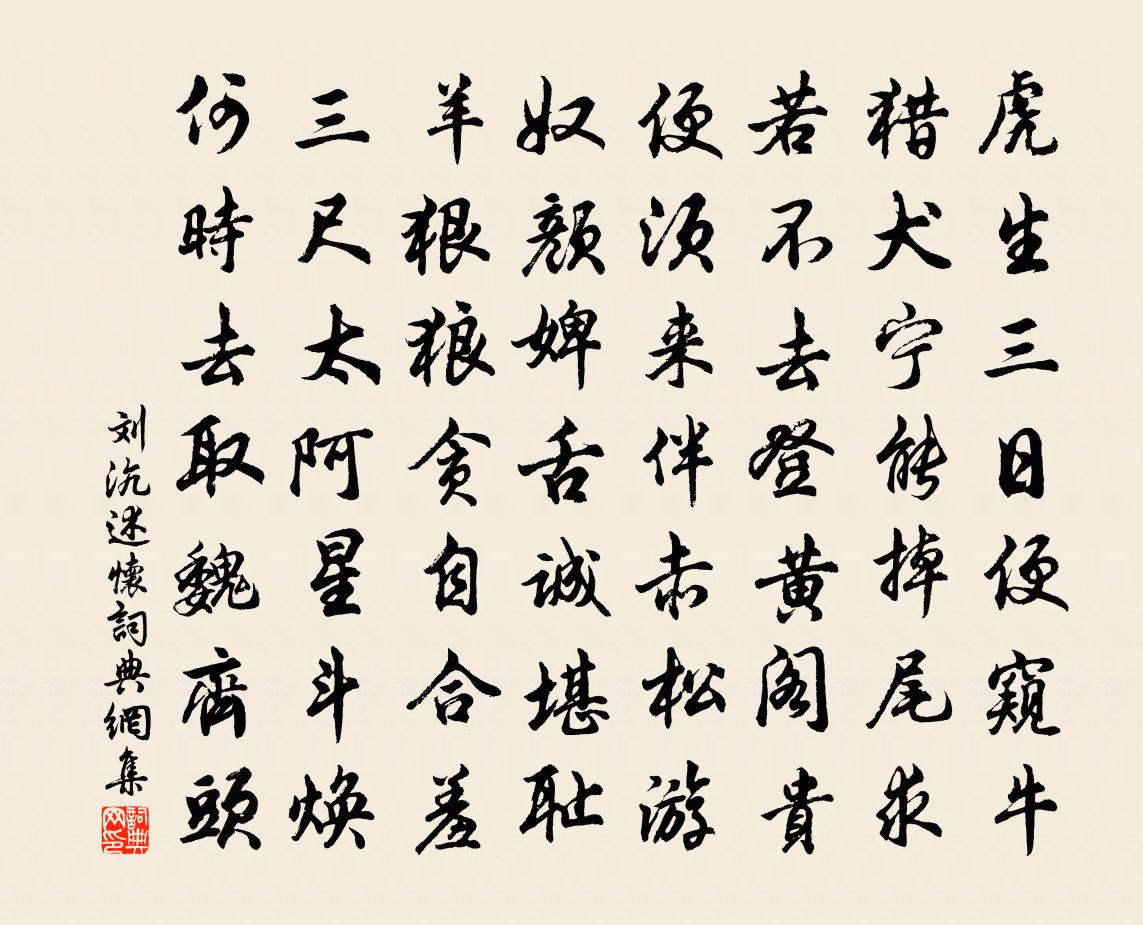 虎生三日便窺牛
猎犬宁能掉尾求
若不去登黃阁貴
便须来伴赤松游
奴颜婢舌诚堪耻
羊狠狼贪自合羞
三尺太阿星斗焕
何時去取魏齊頭
刘沆述懷詞典網集
詞典网印